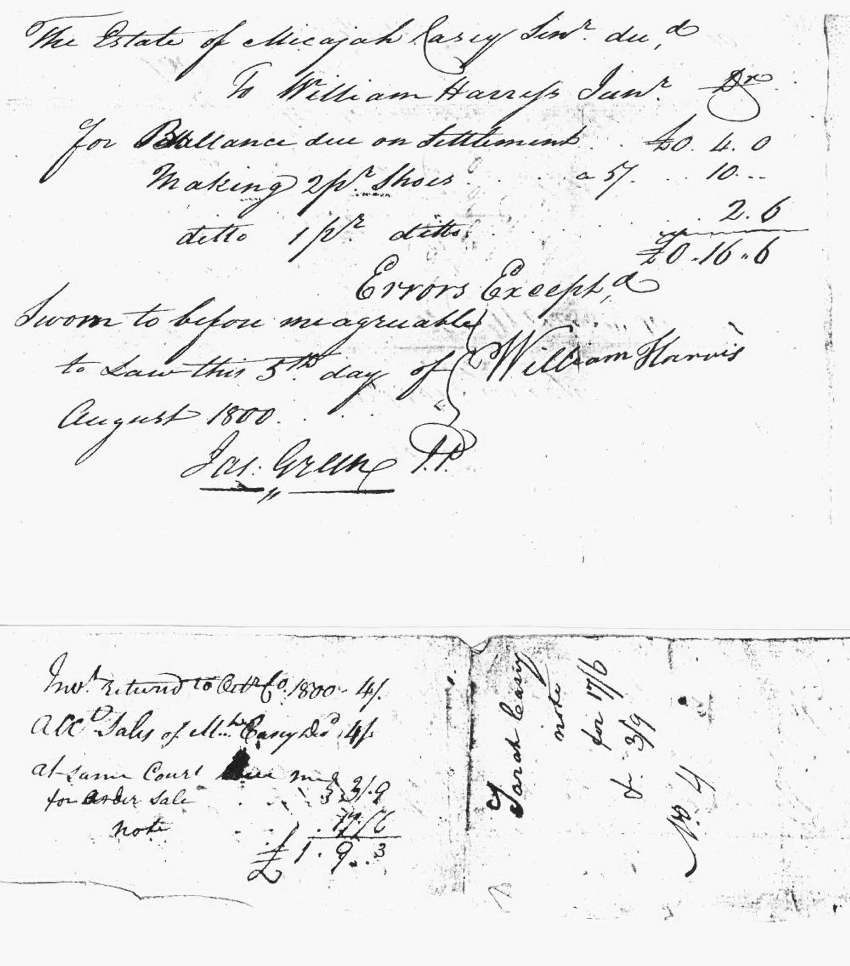 The Estate of Micajah Casey Senr. decd
To William Harress Junr. Dr
for Ballance due on Settlement . . £0. 4. 0
Making 2 pr. Shoes . . . a 5/. . . 10 . . .
ditto 1 pr. ditto . . . . 2. 6
£0 . 16 . 6
Errors Exceptd
Sworn to before me agreeable
to Law this 5th day of William Harris
August 1800 . . .
Jas. Green J.P.
Invt. returnd to Octr Co. 1800 - 4/.
Acct Sales of Casey Decd 4/.
at same Court
for order Sale 3/.9
note 17/6
£1 . 9 . . 3
Sarah Casey
note
for 17/6
& 3/9
No. 4